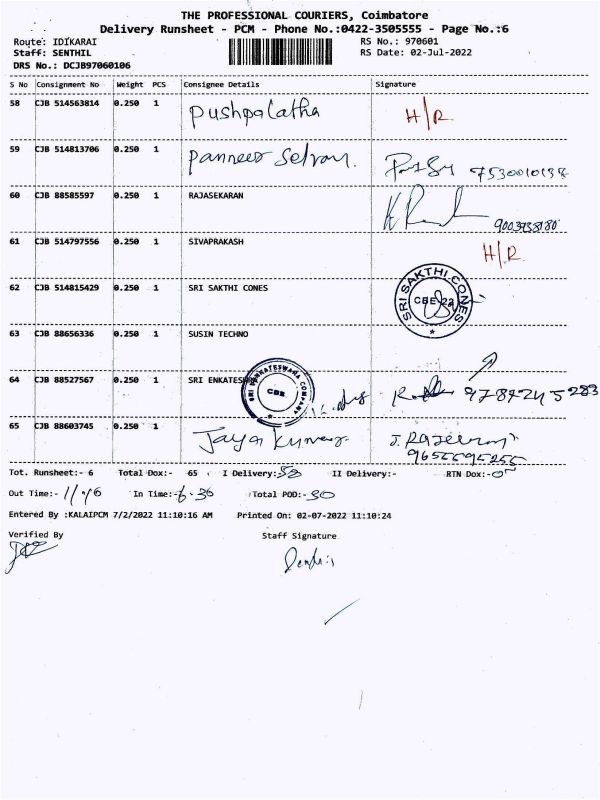 THE PROFESSIONAL COURIERS, Coimbatore
Delivery Runsheet - PCM - Phone No.:0422-3505555 - Page No.:6
Route: IDIKARAI RS No.: 970601
Staff: SENTHIL RS Date: 02-Jul-2022
DRS No.: DCJB97060106
S No Consignment No Weight PCS Consignee Details Signature
58 CJB 514563814 0.250 1 Pushpalatha H/R
59 CJB 514813706 0.250 1 Panneer Selvam. 7530010138
60 CJB 88585597 0.250 1 RAJASEKARAN
9003938180
61 CJB 514797556 0.250 1 SIVAPRAKASH H/R
62 CJB 514815429 0.250 1 SRI SAKTHI CONES SRI SAKTHI CONES CBE
63 CJB 88656336 0.250 1 SUSIN TECHNO
64 CJB 88527567 0.250 1 SRI VENKATESWARA COMPANY CBE
65 CJB 88603745 0.250 1 Jayakumar
Tot. Runsheet:- 6 Total Dox:- 65 I Delivery: II Delivery:- RTN Dox:-
Out Time:- In Time:-6.30 Total POD:-
Entered By :KALAIPCM 7/2/2022 11:10:16 AM Printed On: 02-07-2022 11:10:24
Verified By Staff Signature